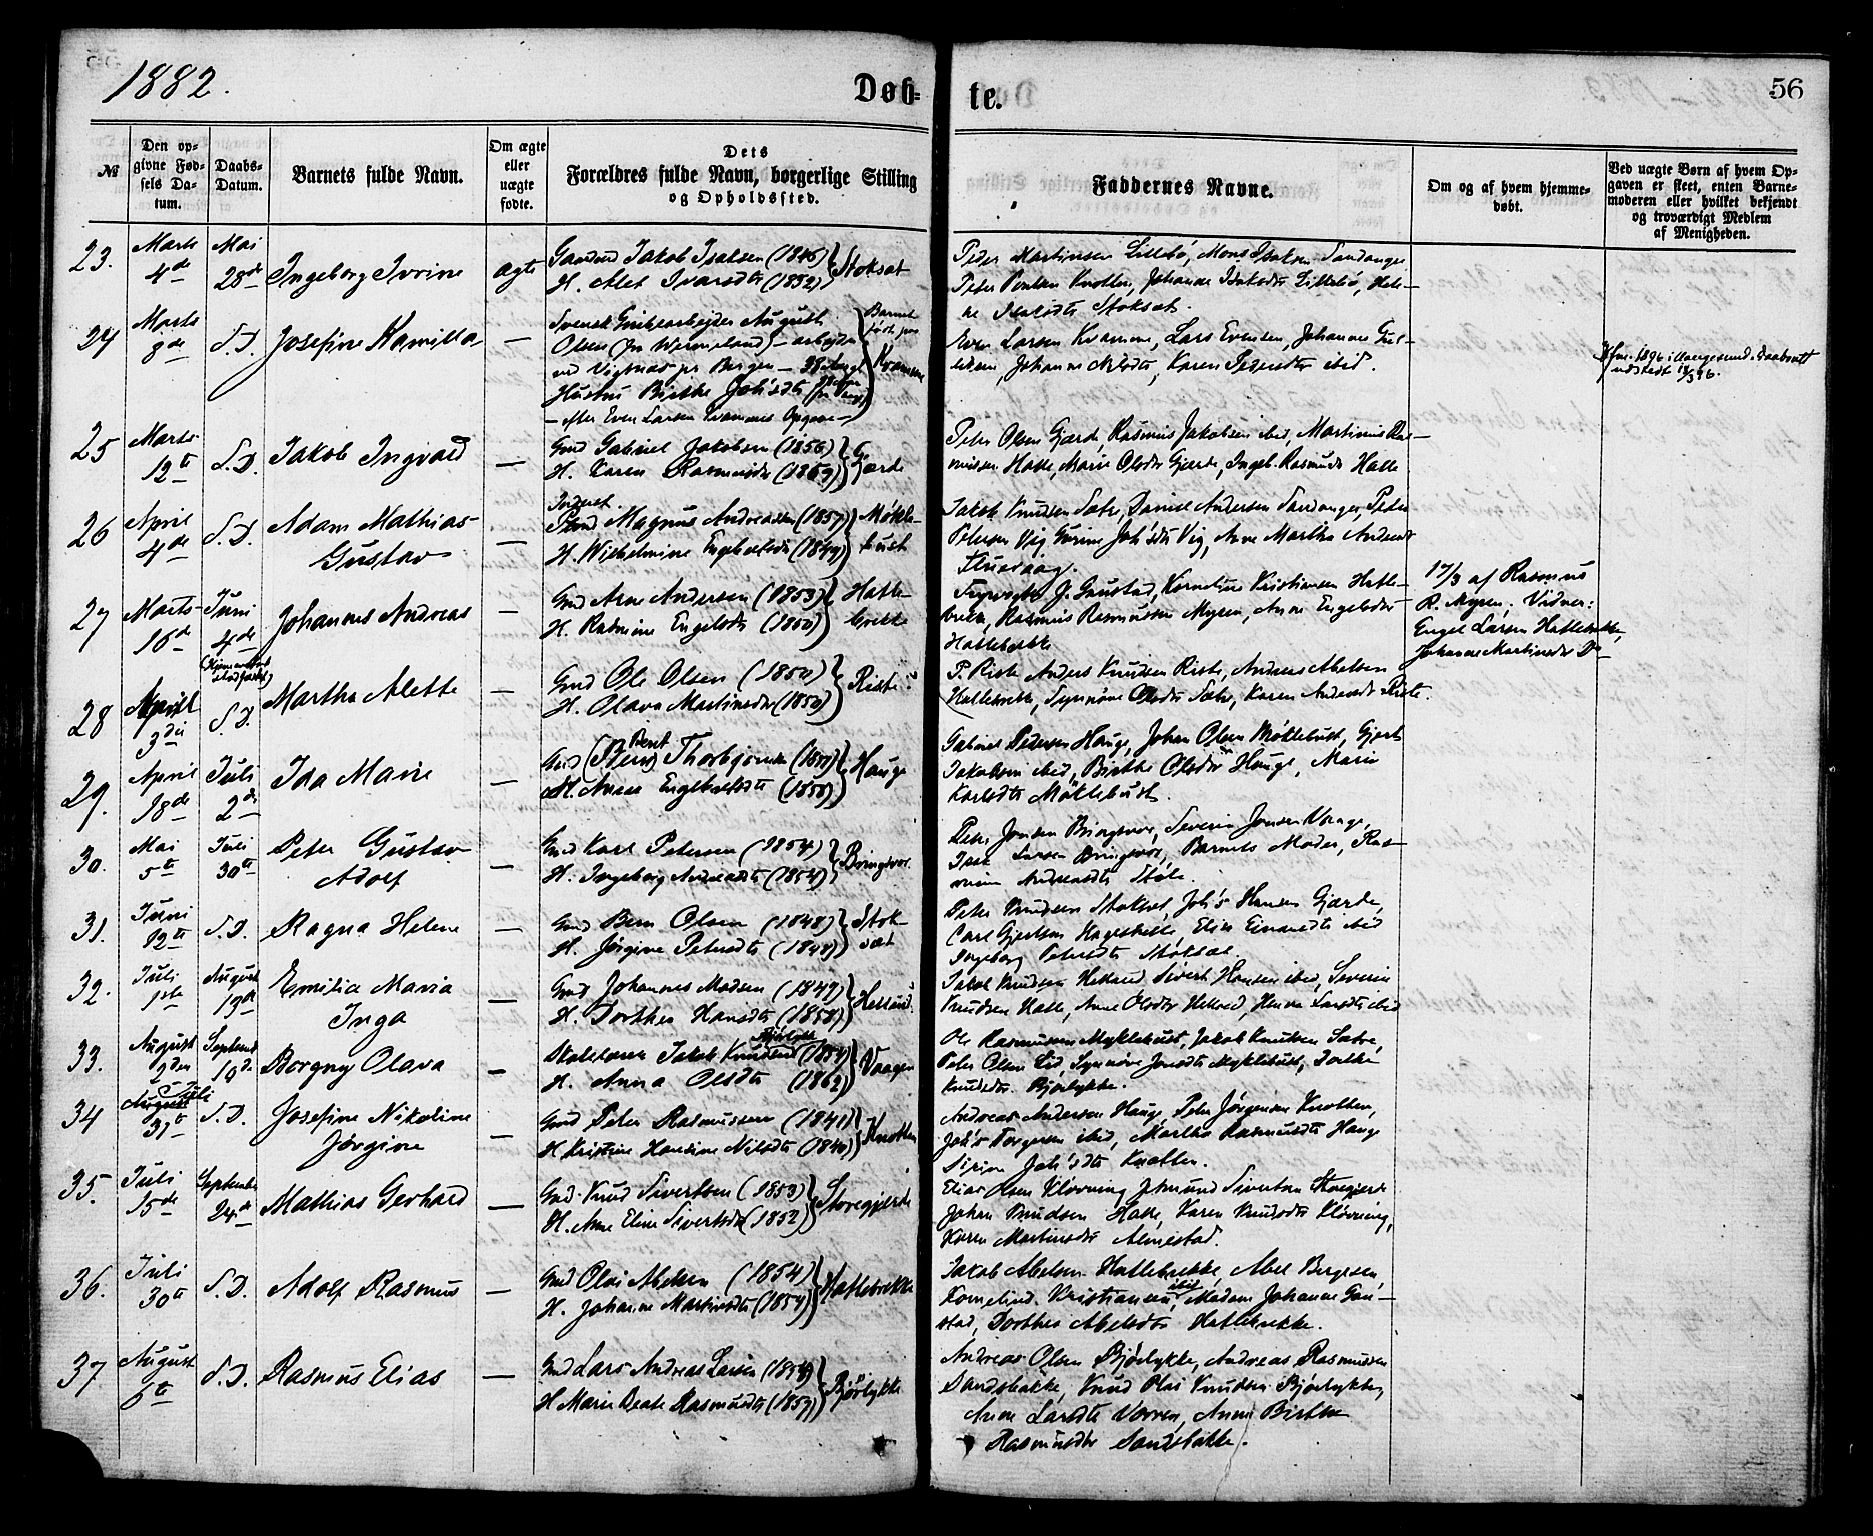 1882.
Døb-
te.
56
№
Den op-
givne Fød-
sels Da-
tum.
Daabs-
Datum.
Barnets fulde Navn.
Om ægte
eller
uægte
fødte.
Dets
Forældres fulde Navn, borgerlige Stilling
og Opholdssted.
Faddernes Navne.
Om og af hvem hjemme-
døbt.
Ved uægte Børn af hvem Op-
gaven er skeet, enten Barne-
moderen eller hvilket bekjendt
og troværdigt Medlem
af Menigheden.
23.
Marts
4de
Mai
28de
Ingeborg Ivrine
ægte
Jakob Isaksen (1846)
H. Alet Ivarsdtr (1852)
Stoksæt
Peder Martinsen Lillebø, Mons Isaksen Sandanger
Peter Knotten, Johanne Isaksdtr Lillebø,
Stoksæt.
24
Marts
8de
d.D.
Josefine Kamilla
—
Svensk August
Olsen (fra Wermeland) – arbejder
ved pr Bergen –
Hustru Birthe Joh'sdtr
– efter Even Larsen Kvammes Opgave –
Barnet
født paa
Kvamme
Even Larsen Kvamme, Lars Evensen, Johannes
Johanne Nilsdtr, Karen Pedersdtr ibid.
25
Marts
12te
d.D.
Jakob Ingvald
—
Gmd Gabriel Jakobsen (1856)
H. Karen Rasmusdtr (1859)
Gjærde
Peter Olsen Gjærde, Rasmus Jakobsen ibid, Martinus Ras-
mussen Hatle, Marie Olsdtr Gjerde, Ingeb. Rasmusdtr Hatle
26
April
4de
d.D.
Adam Mathias
Gustav
—
Magnus Andreassen (1857)
H. Wilhelmine Engebretsdtr (1849)
Møkle-
bust
Jakob Knudsen Sætre, Daniel Andersen Sandanger, Peter
Petersen Vig, Gurine Joh'sdtr Vig, Anne Martha Andersdtr
27
Marts
16de
Juni
4de
Johannes Andreas
—
Gmd Arne Andersen (1853)
H. Rasmine Engelsdtr (1850)
Hatle-
brekke
Fyrvogter J. Gaustad, Kornelius Kristiansen Hatle-
brekke, Rasmus Rasmussen Myren, Anne Engelsdtr
Hatlebrekke
17/3 af Rasmus
R. Myren; Vidner:
Engel Larsen Hatlebrekke,
Johanne Martinsdtr Do
28
April
3die
d.D.
Martha Alette
—
Gmd Ole Olsen (1850)
H. Olava Martinsdtr (1850)
Riste
P. Riste Anders Knudsen Riste, Andreas Abelsen
Hatlebrekke, Synnøve Olsdtr Sætre, Karen Andersdtr Riste.
29.
April
18de
Juli
2den
Ida Marie
—
Gmd Bernt Thorbjørnsen (1850)
H. Anna Engebretsdtr (1850)
Hauge
Gabriel Pedersen Hauge, Johan Olsen Møklebust, Gjert
Jakobsen ibid, Birthe Olsdtr Hauge, Marie
Karlsdtr Møklebust.
30.
Mai
5te
Juli
30te
Peter Gustav
Adolf
—
Gmd Karl Petersen (1854)
H. Ingeborg Andreasdtr (1854)
Bringsvor.
Peter Jonsen Bringsvor, Severin Jonsen Vaage,
Isak Larsen Bringsvor, Barnets Moder, Ras-
mine Andreasdtr Støle.
31.
Juni
12te
d.D.
Ragna Helene
—
Gmd Bern Olsen (1848)
H. Jørgine Petersdtr (1848)
Stok-
sæt
Peter Knudsen Stoksæt, Joh's Hansen Gjærde,
Carl Gjertsen Hageskille, Elise Einarsdtr ibid
Ingeborg Petersdtr Stoksæt.
32.
Juli
1ste
August
13de
Emilia Maria
Inga
—
Gmd Johannes Madsen (1849)
H. Dorthea Hansdtr (1858)
Hellund.
Jakob Knudsen Hellund, Sivert Hansen ibid, Severin
Knudsen Hatle, Anne Olsdtr Hellund, Hanna Larsdtr ibid
33.
August
9den
Septemb
10de
Borgny Olava
—
Skolelærer Jakob Knudsen Bjørlykke (1857)
H. Anna Olsdtr (1862)
Vaagen
Ole Rasmussen Myklebust, Jakob Knudsen Sætre,
Peter Olsen Lid, Synnøve Jonsdtr Myklebust,
Knudsdtr. Bjørlykke.
34
Juli
August
31te
d.D.
Josefine Nikoline
Jørgine
—
Gmd Peter Rasmussen (1841)
H Kristine Hansine Nilsdtr (1840)
Knotten
Andreas Andersen Hauge, Peter Jørgensen Knotten,
Joh's Torgersen ibid, Martha Rasmusdtr Hauge
Sirine Joh'sdtr Knotten.
35.
Juli
15de
September
24de
Mathias Gerhard
—
Gmd. Knud Sivertsen (1853)
H. Anne Eline Sivertsdtr (1852)
Storegjerde
Elias Olsen Kløvning, Sivertsen Storegjerde
Johan Knudsen Hatle, Karen Knudsdtr Kløvning,
Karen Martinsdtr Almestad.
36.
Juli
30te
d.D.
Adolf Rasmus
—
Gmd Olai Abelsen (1854)
H. Johanne Martinsdtr (1854)
Hatlebrekke
Jakob Abelsen Hatlebrekke, Abel Børgesen,
Kornelius Kristiansen ibid, Madam Johanne Gau-
stad, Dorthea Abelsdtr Hatlebrekke.
37
August
6te
d.D.
Rasmus Elias
—
Gmd Lars Andreas Larsen (1854)
H Marie Beate Rasmusdtr (1857)
Bjørlykke
Andreas Olsen Bjørlykke, Andreas Rasmussen
Sandsbakke, Knud Olai Knudsen Bjørlykke,
Anne Larsdtr Vorren, Anne Birthe
Rasmusdtr Sandsbakke.